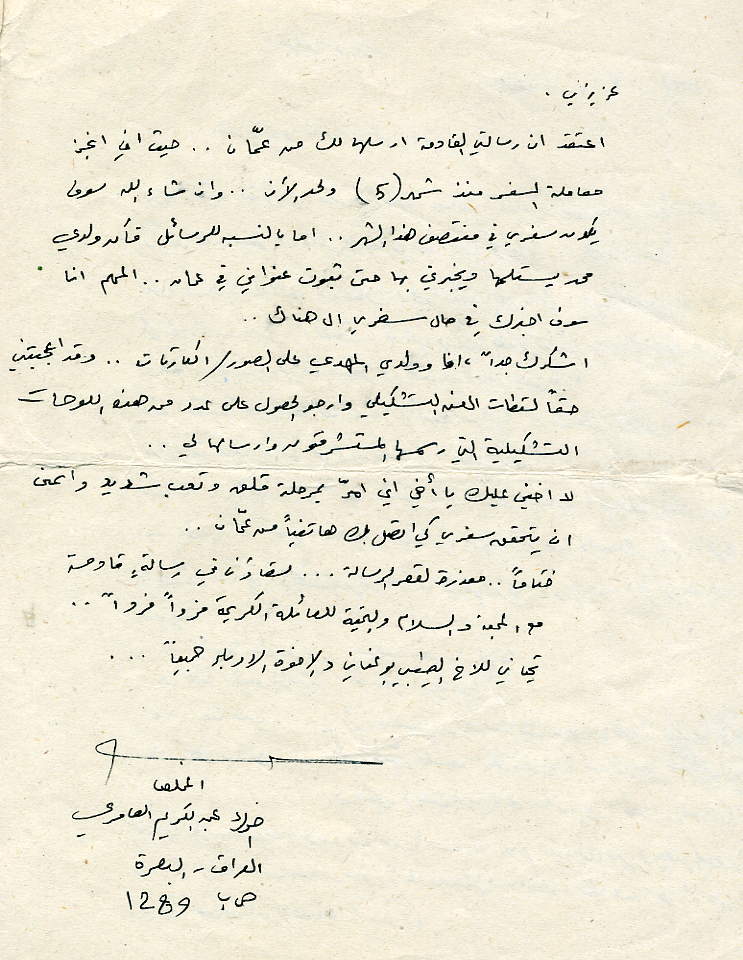 عزيزتي .
اعتقد ان رسالتي القادمة ارسلها لك من عمّان .. حيث اني انجز
معاملة السفر منذ شهر (5) ولحد الآن .. وان شاء الله سوف
يكون سفري في منتصف هذا الشهر .. اما بالنسبه للرسائل فأن ولدي
محمد يستلمها ويخبرني بها حتى ثبوت عنواني في عمان .. المهم انا
سوف اخبرك في حال سفري الى هناك ..
اشكرك جداً ، انا وولدي المهدي على الصور / الكارتات .. وقد اعجبتني
حقاً لقطات الفن التشكيلي وارجو الحصول على عدد من هذه اللوحات
التشكيلية التي رسمها المستشرقون وارسالها لي ..
لا اخفي عليك يا أخي اني امرّ بمرحلة قلق وتعب شديد واتمنى
ان يتحقق سفري كي اتصل بك هاتفياً من عمّان ..
ختاماً .. معذرة لقصر الرسالة ... لقاؤنا في رسالةٍ قادمة
مع المحبة والسلام والتحية للعائلة الكريمة فرداً فرداً ..
تحياتي للاخ الطيب بوعناني والاخوة الادباء جميعاً ...
المخلص
عبد الكريم العامري
العراق - البصرة
ص ب 1289